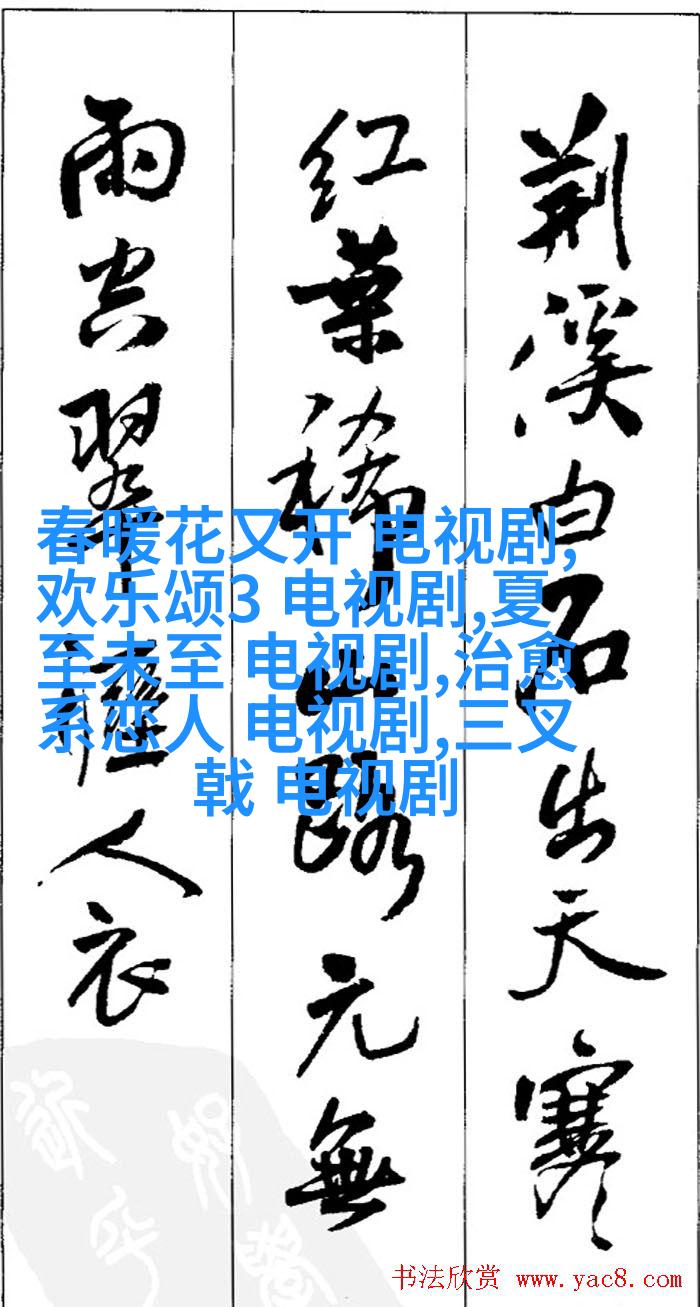 荆溪白石出天寒
红葉稀山路元無
雨空翠濕人衣
春暖花又开 电视剧,
欢乐颂3 电视剧,夏
至未至 电视剧,治愈
系恋人 电视剧,三叉
戟 电视剧
书法欣赏 www.yac8.com